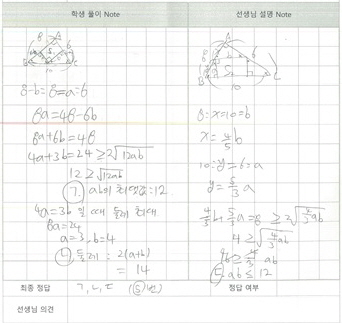 학생 풀이 Note
선생님 설명 Note
A
8
6
B
C
10
8-b=8=a=6
8a=48-6b
8a+6b=48
4a+3b=24≥2√12ab
12≥√12ab
ㄱ. ab의 최댓값=12.
4a=3b 일 때 둘레 최대
8a=24
a=3, b=4
ㄴ. 둘레 = 2(a+b)
= 14
A
6
B
C
10
8:x=10=b
x=4/5 b
10:y=6=a
y=5/3 a
4/5 b+5/3 a=8≥2√4/3 ab
4≥√4/3 ab
ㄷ. ab≤12
최종 정답
ㄱ, ㄴ, ㄷ (⑤번)
정답 여부
선생님 의견